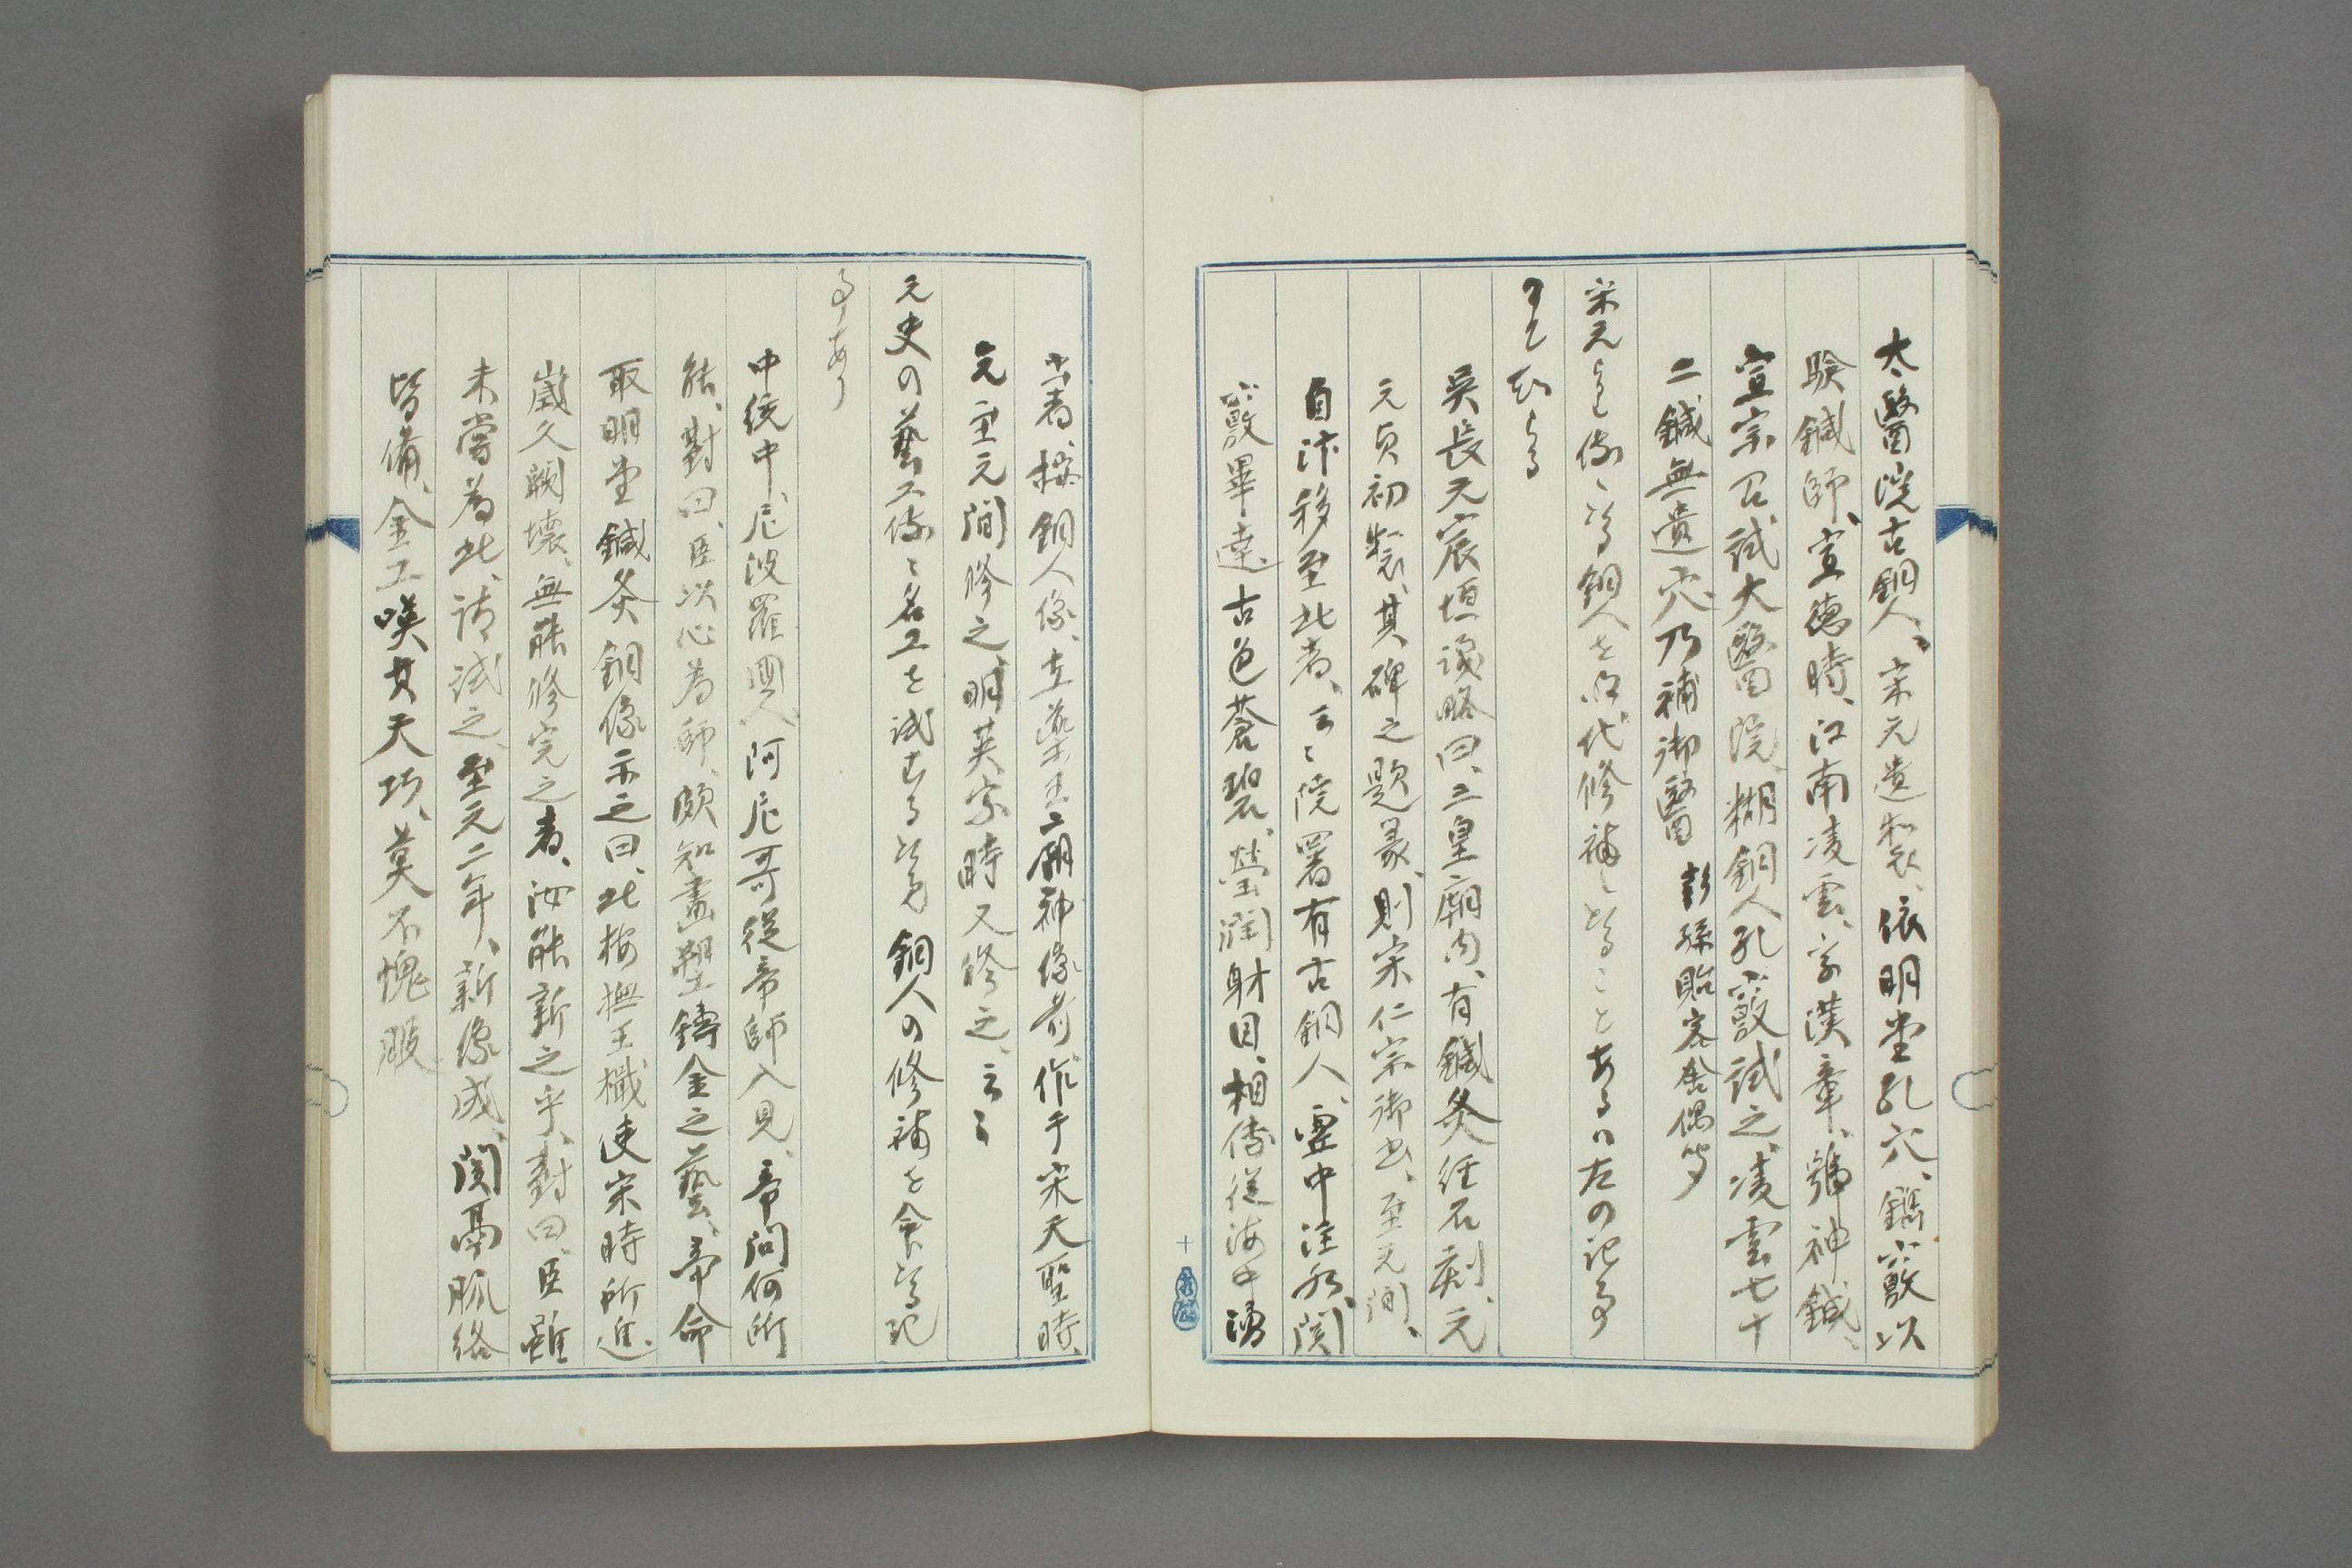 太醫院古銅人、宋元遺製、依明堂孔穴、鑄竅以
驗鍼師、宣德時、江南凌雲、字漢章、號神鍼、
宣宗召試大醫院、糊銅人孔竅試之、凌雲七十
二鍼無遺穴、乃補御醫 彭孫貽客舍偶聞
宋元より傳はる銅人を明代修補したることあるハ左の記事
にて知る
吳長元宸垣識略曰、三皇廟内、有鍼灸經石刻、元
元貞初製、其碑之題篆、則宋仁宗御書、至元間、
自汴移至此者、云々院署有古銅人、虛中注水、関
竅畢達、古色蒼碧、瑩潤射目、相傳從海中湧
出者、按銅人像、在藥王廟神像前、作于宋天聖時、
元至元間修之、明英宗時又修之、云々
元史の藝工傳に名工を試むる為銅人の修補を命したる記
事あり
中統中、尼波羅國人、阿尼哥從帝師入見、帝問何所
能、對曰、臣以心為師、頗知畫塑鑄金之藝、帝命
取明堂鍼灸銅像示之曰、此按撫王檝使宋時所進、
歲久闕壞、無能修完之者、汝能新之乎、對曰、臣雖
未嘗為此、請試之、至元二年、新像成、関鬲脈絡
皆備、金工嘆其天巧、莫不愧服